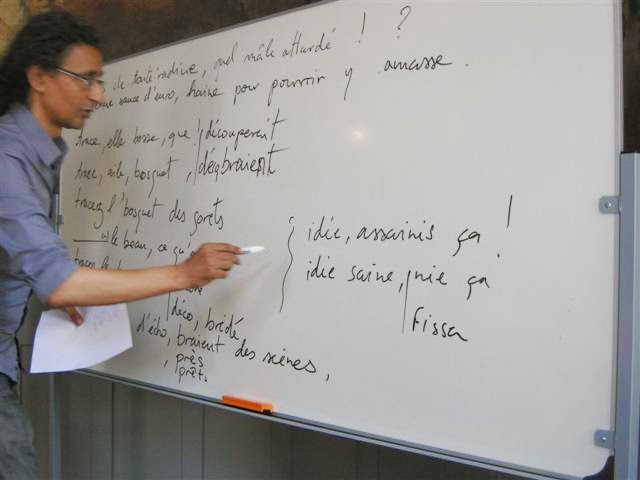 de toute radine, quel mâle attardé ! ?
sauce d'euro, haine pour pouvoir y amasse.
trace, elle bosse, que découperait
trace, aile, bosquet, dégbraient
tracez l'bosquet des gorets
le beau, ce qu'
déco, bridé
d'écho, braient des scènes,
, près
prêt.
idée, assainis ça !
idée saine, nie ça
fissa